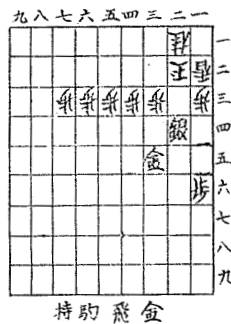 九八七六五四三二一
桂 一
王 香 二
歩 歩 歩 歩 歩 歩 三
銀 四
金 五
歩 六
七
八
九
持駒 飛 金